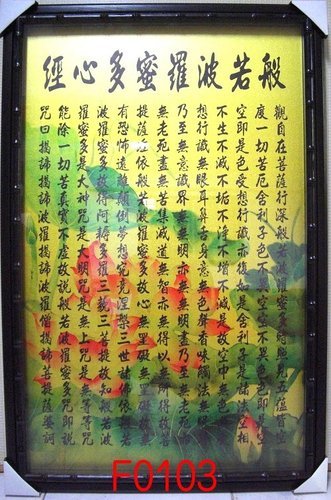 般若波羅蜜多心經
觀自在菩薩行深般若波羅蜜多時照見五蘊皆空
度一切苦厄舍利子色不異空空不異色色即是空
空即是色受想行識亦復如是舍利子是諸法空相
不生不滅不垢不淨不增不減是故空中無色無受
想行識無眼耳鼻舌身意無色聲香味觸法無眼界
乃至無意識界無無明亦無無明盡乃至無老死亦
無老死盡無苦集滅道無智亦無得以無所得故菩
提薩埵依般若波羅蜜多故心無罣礙無罣礙故無
有恐怖遠離顛倒夢想究竟涅槃三世諸佛依般若
波羅蜜多故得阿耨多羅三藐三菩提故知般若波
羅蜜多是大神咒是大明咒是無上咒是無等等咒
能除一切苦真實不虛故說般若波羅蜜多咒即說
咒曰揭諦揭諦波羅揭諦波羅僧揭諦菩提薩婆訶
F0103